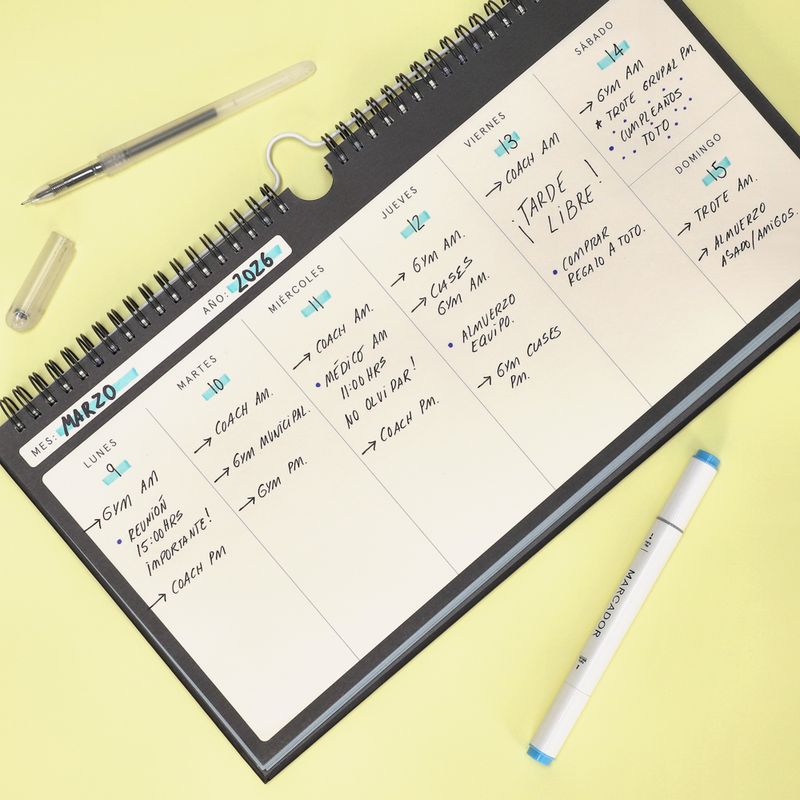 MES: MARZO
AÑO: 2026
LUNES
9
→ GYM AM
• REUNIÓN
15:00HRS
¡MPORTANTE!
→ COACH PM
MARTES
10
→ COACH AM.
→ GYM MUNICIPAL.
→ GYM PM.
MIÉRCOLES
11
→ COACH AM.
• MÉDICO AM
11:00HRS
NO OLVIDAR!
→ COACH PM.
JUEVES
12
→ GYM AM.
→ CLASES
GYM AM.
• ALMUERZO
EQUIPO.
→ GYM CLASES
PM.
VIERNES
13
→ COACH AM
¡TARDE
LIBRE!
• COMPRAR
REGALO A TOTO.
SÁBADO
14
→ GYM AM
* TROTE GRUPAL PM.
• CUMPLEAÑOS
TOTO
DOMINGO
15
→ TROTE AM.
→ ALMUERZO
ASADO/AMIGOS.
MARCADOR